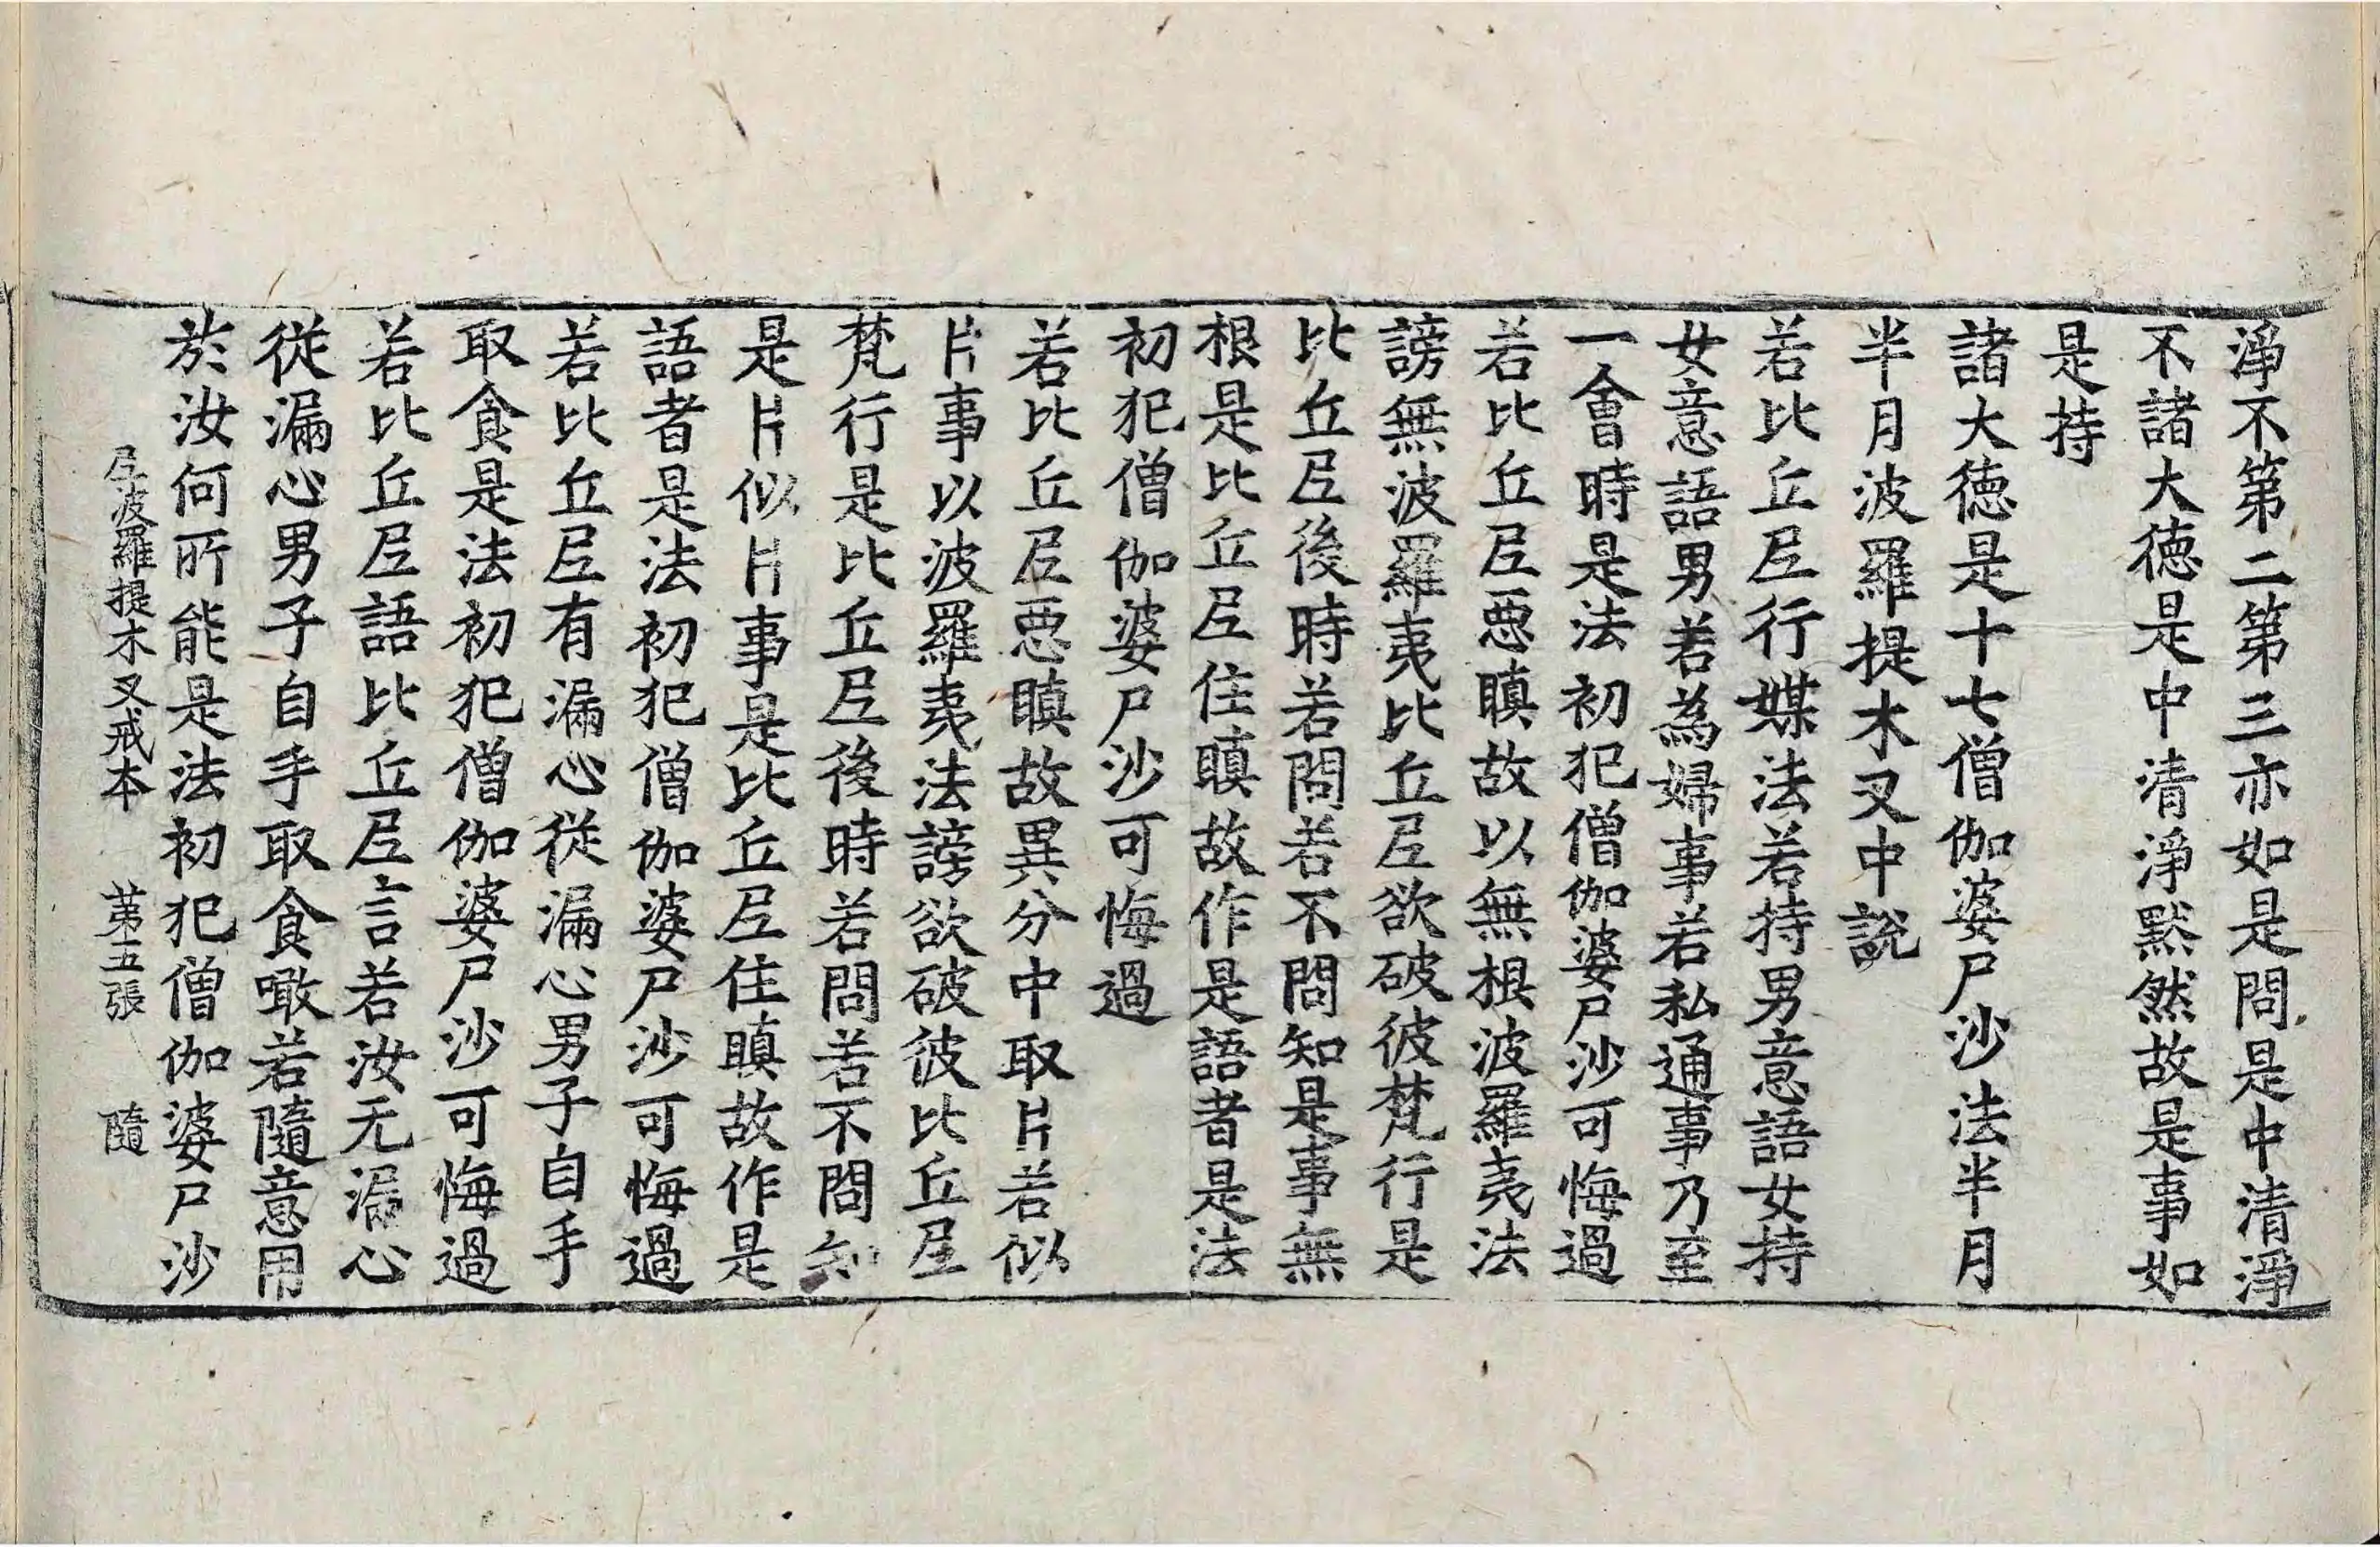 淨不第二第三亦如是問是中清淨
不諸大徳是中清淨黙然故是事如
是持
諸大徳是十七僧伽婆尸沙法半月
半月波羅提木叉中說
若比丘𡰱行媒法若持男意語女持
女意語男若為婦事若私通事乃至
一會時是法初犯僧伽婆尸沙可悔過
若比丘𡰱悪瞋故以無根波羅夷法
謗無波羅夷比丘𡰱欲破彼梵行是
比丘𡰱後時若問若不問知是事無
根是比丘𡰱住瞋故作是語者是法
初犯僧伽婆尸沙可悔過
若比丘𡰱悪瞋故異分中取片若似
片事以波羅夷法謗欲破彼比丘𡰱
梵行是比丘𡰱後時若問若不問知
是片似片事是比丘𡰱住瞋故作是
語者是法初犯僧伽婆尸沙可悔過
若比丘𡰱有漏心従漏心男子自手
取食是法初犯僧伽婆尸沙可悔過
若比丘𡰱語比丘𡰱言若汝无漏心
従漏心男子自手取食噉若隨意用
於汝何所能是法初犯僧伽婆尸沙
𡰱波羅提木叉戒本 苐五張 隨